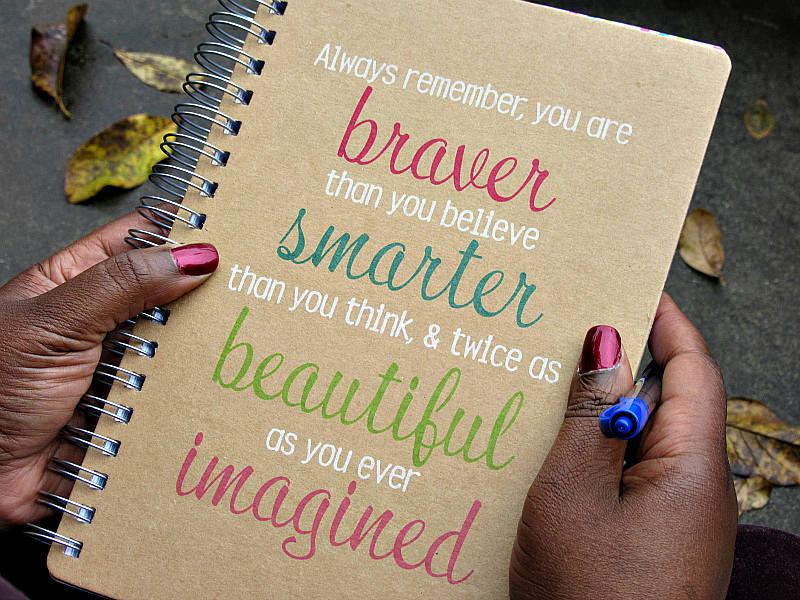 Always remember, you are
braver
than you believe
smarter
than you think, & twice as
beautiful
as you ever
imagined